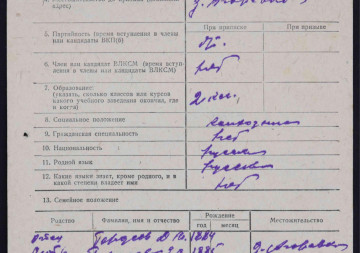 адрес)
При приписке
При призыве
5. Партийность (время вступления в члены
или кандидаты ВКП(б)
6. Член или кандидат ВЛКСМ (время всту-
пления в члены или кандидаты ВЛКСМ)
нет
7. Образование:
(указать, сколько классов или курсов
какого учебного заведения окончил, где
и когда)
2 кл.
8. Социальное положение
колхозник
9. Гражданская специальность
нет
10. Национальность
русский
11. Родной язык
русский
12. Какие языки знает, кроме родного, и в
какой степени владеет ими
нет
13. Семейное положение
Родство
Фамилия, имя и отчество
Рождение
год
месяц
Местожительство
отец
1884